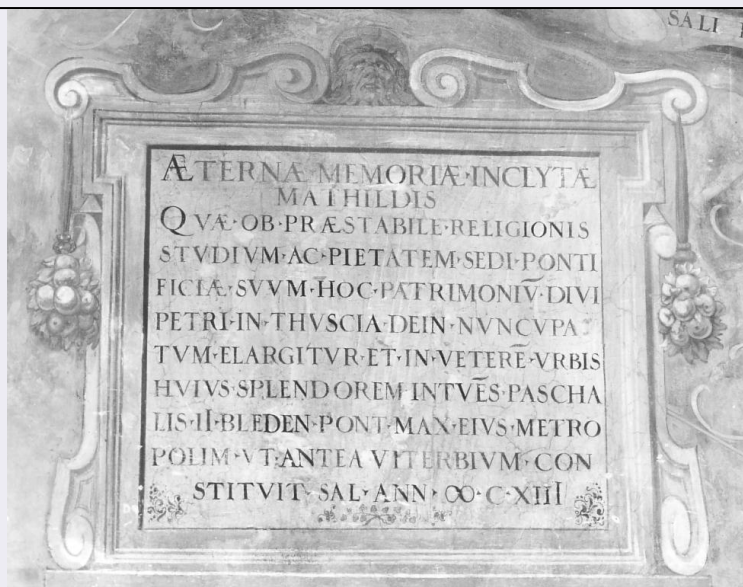 SALI
ÆTERNÆ·MEMORIÆ·INCLYTÆ
MATHILDIS
QVÆ·OB·PRÆSTABILE·RELIGIONIS
STVDIVM·AC·PIETATEM·SEDI·PONTI
FICIÆ·SVVM·HOC·PATRIMONIV̄·DIVI
PETRI·IN·THVSCIA·DEIN·NVNCVPA
TVM·ELARGITVR·ET·IN·VETERĒ·VRBIS
HVIVS·SPLENDOREM INTVĒS·PASCHA
LIS·II·BLEDEN·PONT·MAX·EIVS·METRO
POLIM·VT·ANTEA VITERBIVM·CON
STITVIT·SAL·ANN·ↀ·C·XIII